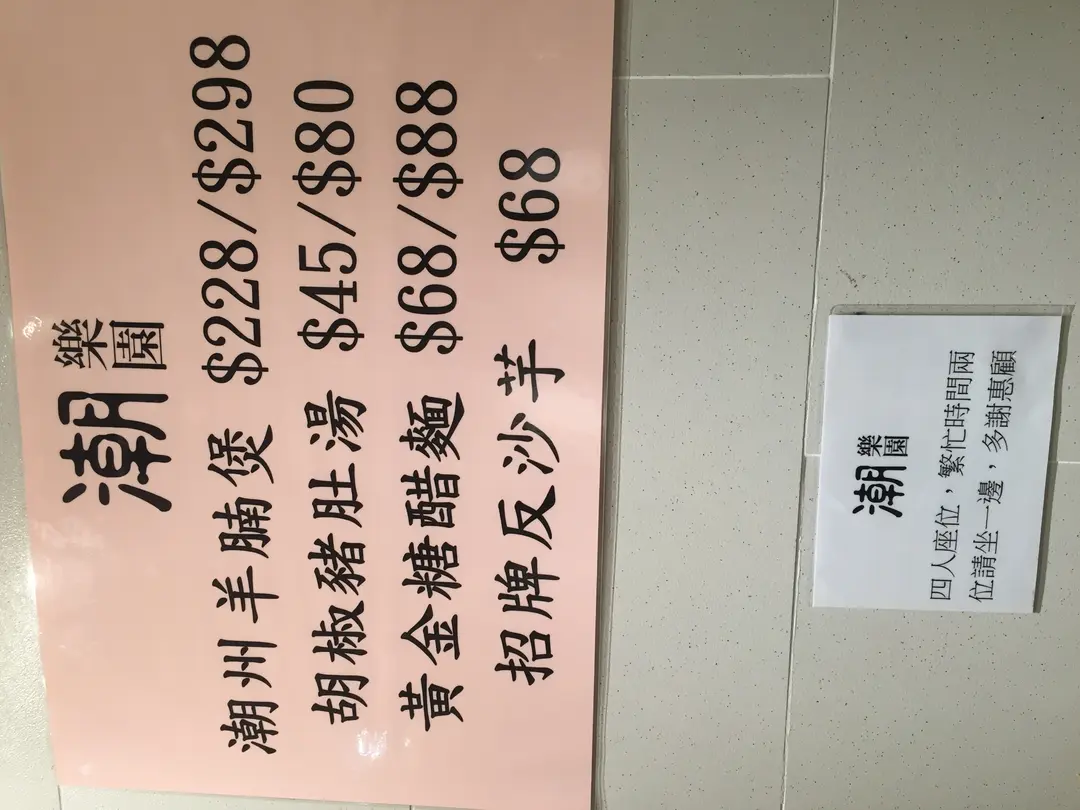 潮樂園
潮州羊腩煲 $228/$298
胡椒豬肚湯 $45/$80
黃金糖醋麵 $68/$88
招牌反沙芋 $68
潮樂園
四人座位，繁忙時間兩
位請坐一邊，多謝惠顧